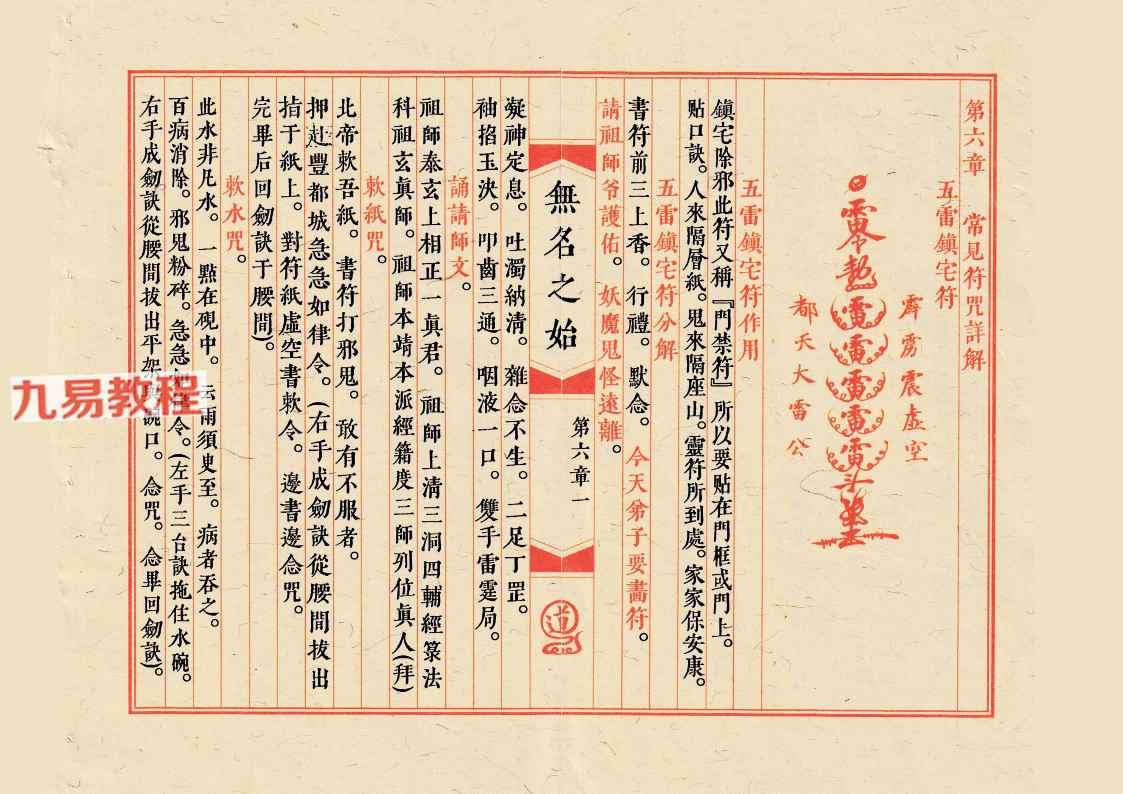 第六章　常見符咒詳解
五雷鎮宅符
霹雳震虚空
都天大雷公
五雷鎮宅符作用
鎮宅除邪此符又稱『門禁符』所以要贴在門框或門上。
贴口訣。人來隔層紙。鬼來隔座山。靈符所到處。家家保安康。
五雷鎮宅符分解
書符前三上香。行禮。默念。今天弟子要畵符。
請祖師爷護佑。妖魔鬼怪遠離。
無名之始
第六章一
道
凝神定息。吐濁納清。雜念不生。二足丁罡。
袖掐玉決。叩齒三通。咽液一口。雙手雷霆局。
誦請師文。
祖師泰玄上相正一真君。祖師上清三洞四輔經箓法
科祖玄真師。祖師本靖本派經籍度三師列位真人(拜)
敕紙咒。
北帝敕吾紙。書符打邪鬼。敢有不服者。
押赴豐都城急急如律令。(右手成劍訣從腰間拔出
指于紙上。對符紙虛空書敕令。邊書邊念咒。
完畢后回劍訣于腰間)。
敕水咒。
此水非凡水。一點在硯中。云雨須臾至。病者吞之。
百病消除。邪鬼粉碎。急急如律令。(左手三台訣拖住水碗。
右手成劍訣從腰間拔出平架與碗口。念咒。念畢回劍訣)。
九易教程